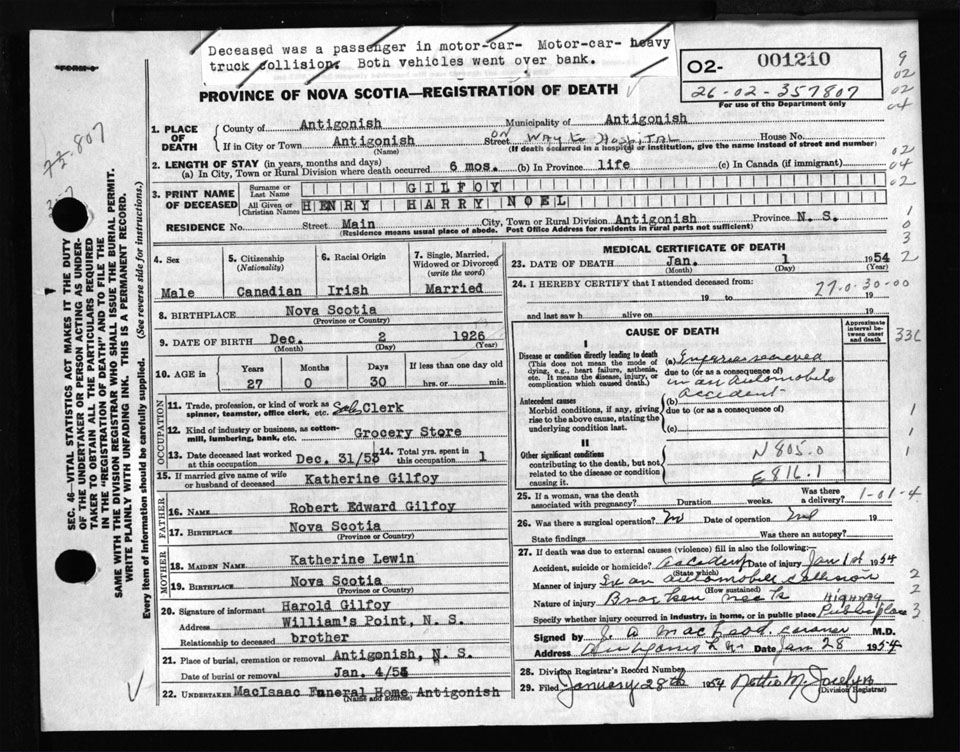 Deceased was a passenger in motor-car- Motor-car- heavy
truck collision. Both vehicles went over bank.
FORM 6
O2- 001210
26-02-357807
For use of the Department only
PROVINCE OF NOVA SCOTIA—REGISTRATION OF DEATH
1. PLACE OF DEATH
County of Antigonish Municipality of Antigonish
If in City or Town Antigonish Street ON Way to Hospital House No.
(Name) (If death occurred in a hospital or institution, give the name instead of street and number)
2. LENGTH OF STAY (in years, months and days)
(a) In City, Town or Rural Division where death occurred 6 mos. (b) In Province life (c) In Canada (if immigrant)
3. PRINT NAME OF DECEASED
Surname or Last Name GILFOY
All Given or Christian Names HENRY HARRY NOEL
RESIDENCE No. Street Main City, Town or Rural Division Antigonish Province N. S.
(Residence means usual place of abode. Post Office Address for residents in rural parts not sufficient)
4. Sex
Male
5. Citizenship (Nationality)
Canadian
6. Racial Origin
Irish
7. Single, Married, Widowed or Divorced (write the word)
Married
8. BIRTHPLACE Nova Scotia
(Province or Country)
9. DATE OF BIRTH Dec. 2 1926
(Month) (Day) (Year)
10. AGE in Years Months Days If less than one day old
27 0 30 hrs. or min.
OCCUPATION
11. Trade, profession, or kind of work as spinner, teamster, office clerk, etc. Sales Clerk
12. Kind of industry or business, as cotton-mill, lumbering, bank, etc. Grocery Store
13. Date deceased last worked at this occupation Dec. 31/53 14. Total yrs. spent in this occupation 1
15. If married give name of wife or husband of deceased Katherine Gilfoy
FATHER
16. NAME Robert Edward Gilfoy
17. BIRTHPLACE Nova Scotia
(Province or Country)
MOTHER
18. MAIDEN NAME Katherine Lewin
19. BIRTHPLACE Nova Scotia
(Province or Country)
20. Signature of informant Harold Gilfoy
Address William's Point, N. S.
Relationship to deceased brother
21. Place of burial, cremation or removal Antigonish, N. S.
Date of burial or removal Jan. 4/54
22. UNDERTAKER MacIsaac Funeral Home Antigonish
(Name and Address)
MEDICAL CERTIFICATE OF DEATH
23. DATE OF DEATH Jan. 1 1954
(Month) (Day) (Year)
24. I HEREBY CERTIFY that I attended deceased from:
19 to 19
27-0-30-00
and last saw h alive on 19
CAUSE OF DEATH
Approximate interval between onset and death
I
Disease or condition directly leading to death
(This does not mean the mode of dying, e.g., heart failure, asthenia, etc. It means the disease, injury, or complication which caused death.)
(a) Injuries received
due to (or as a consequence of)
in an automobile
accident
Antecedent causes
Morbid conditions, if any, giving rise to the above cause, stating the underlying condition last.
(b)
due to (or as a consequence of)
(c)
II
Other significant conditions
contributing to the death, but not related to the disease or condition causing it.
N 805.0
E 816.1
25. If a woman, was the death associated with pregnancy? Duration weeks. Was there a delivery?
1-01-4
26. Was there a surgical operation? No Date of operation 19
State findings Was there an autopsy?
27. If death was due to external causes (violence) fill in also the following:—
Accident, suicide or homicide? accident Date of injury Jan 1st 1954
(State which)
Manner of injury In an automobile collision
(How sustained)
Nature of injury Broken neck
Highway
Specify whether injury occurred in industry, in home, or in public place Public place
Signed by J. A. MacLeod, coroner M.D.
Address Antigonish N.S. Date Jan 28 1954
28. Division Registrar's Record Number
29. Filed January 28th 1954
(Division Registrar)
SEC. 46—VITAL STATISTICS ACT MAKES IT THE DUTY
OF THE UNDERTAKER OR PERSON ACTING AS UNDER-
TAKER TO OBTAIN ALL THE PARTICULARS REQUIRED
IN THE "REGISTRATION OF DEATH" AND TO FILE THE
SAME WITH THE DIVISION REGISTRAR WHO SHALL ISSUE THE BURIAL PERMIT.
WRITE PLAINLY WITH UNFADING INK. THIS IS A PERMANENT RECORD.
Every item of information should be carefully supplied. (See reverse side for instructions.)
9
02
02
04
02
04
02
1
0
3
2
33C
1
1
1
2
2
3